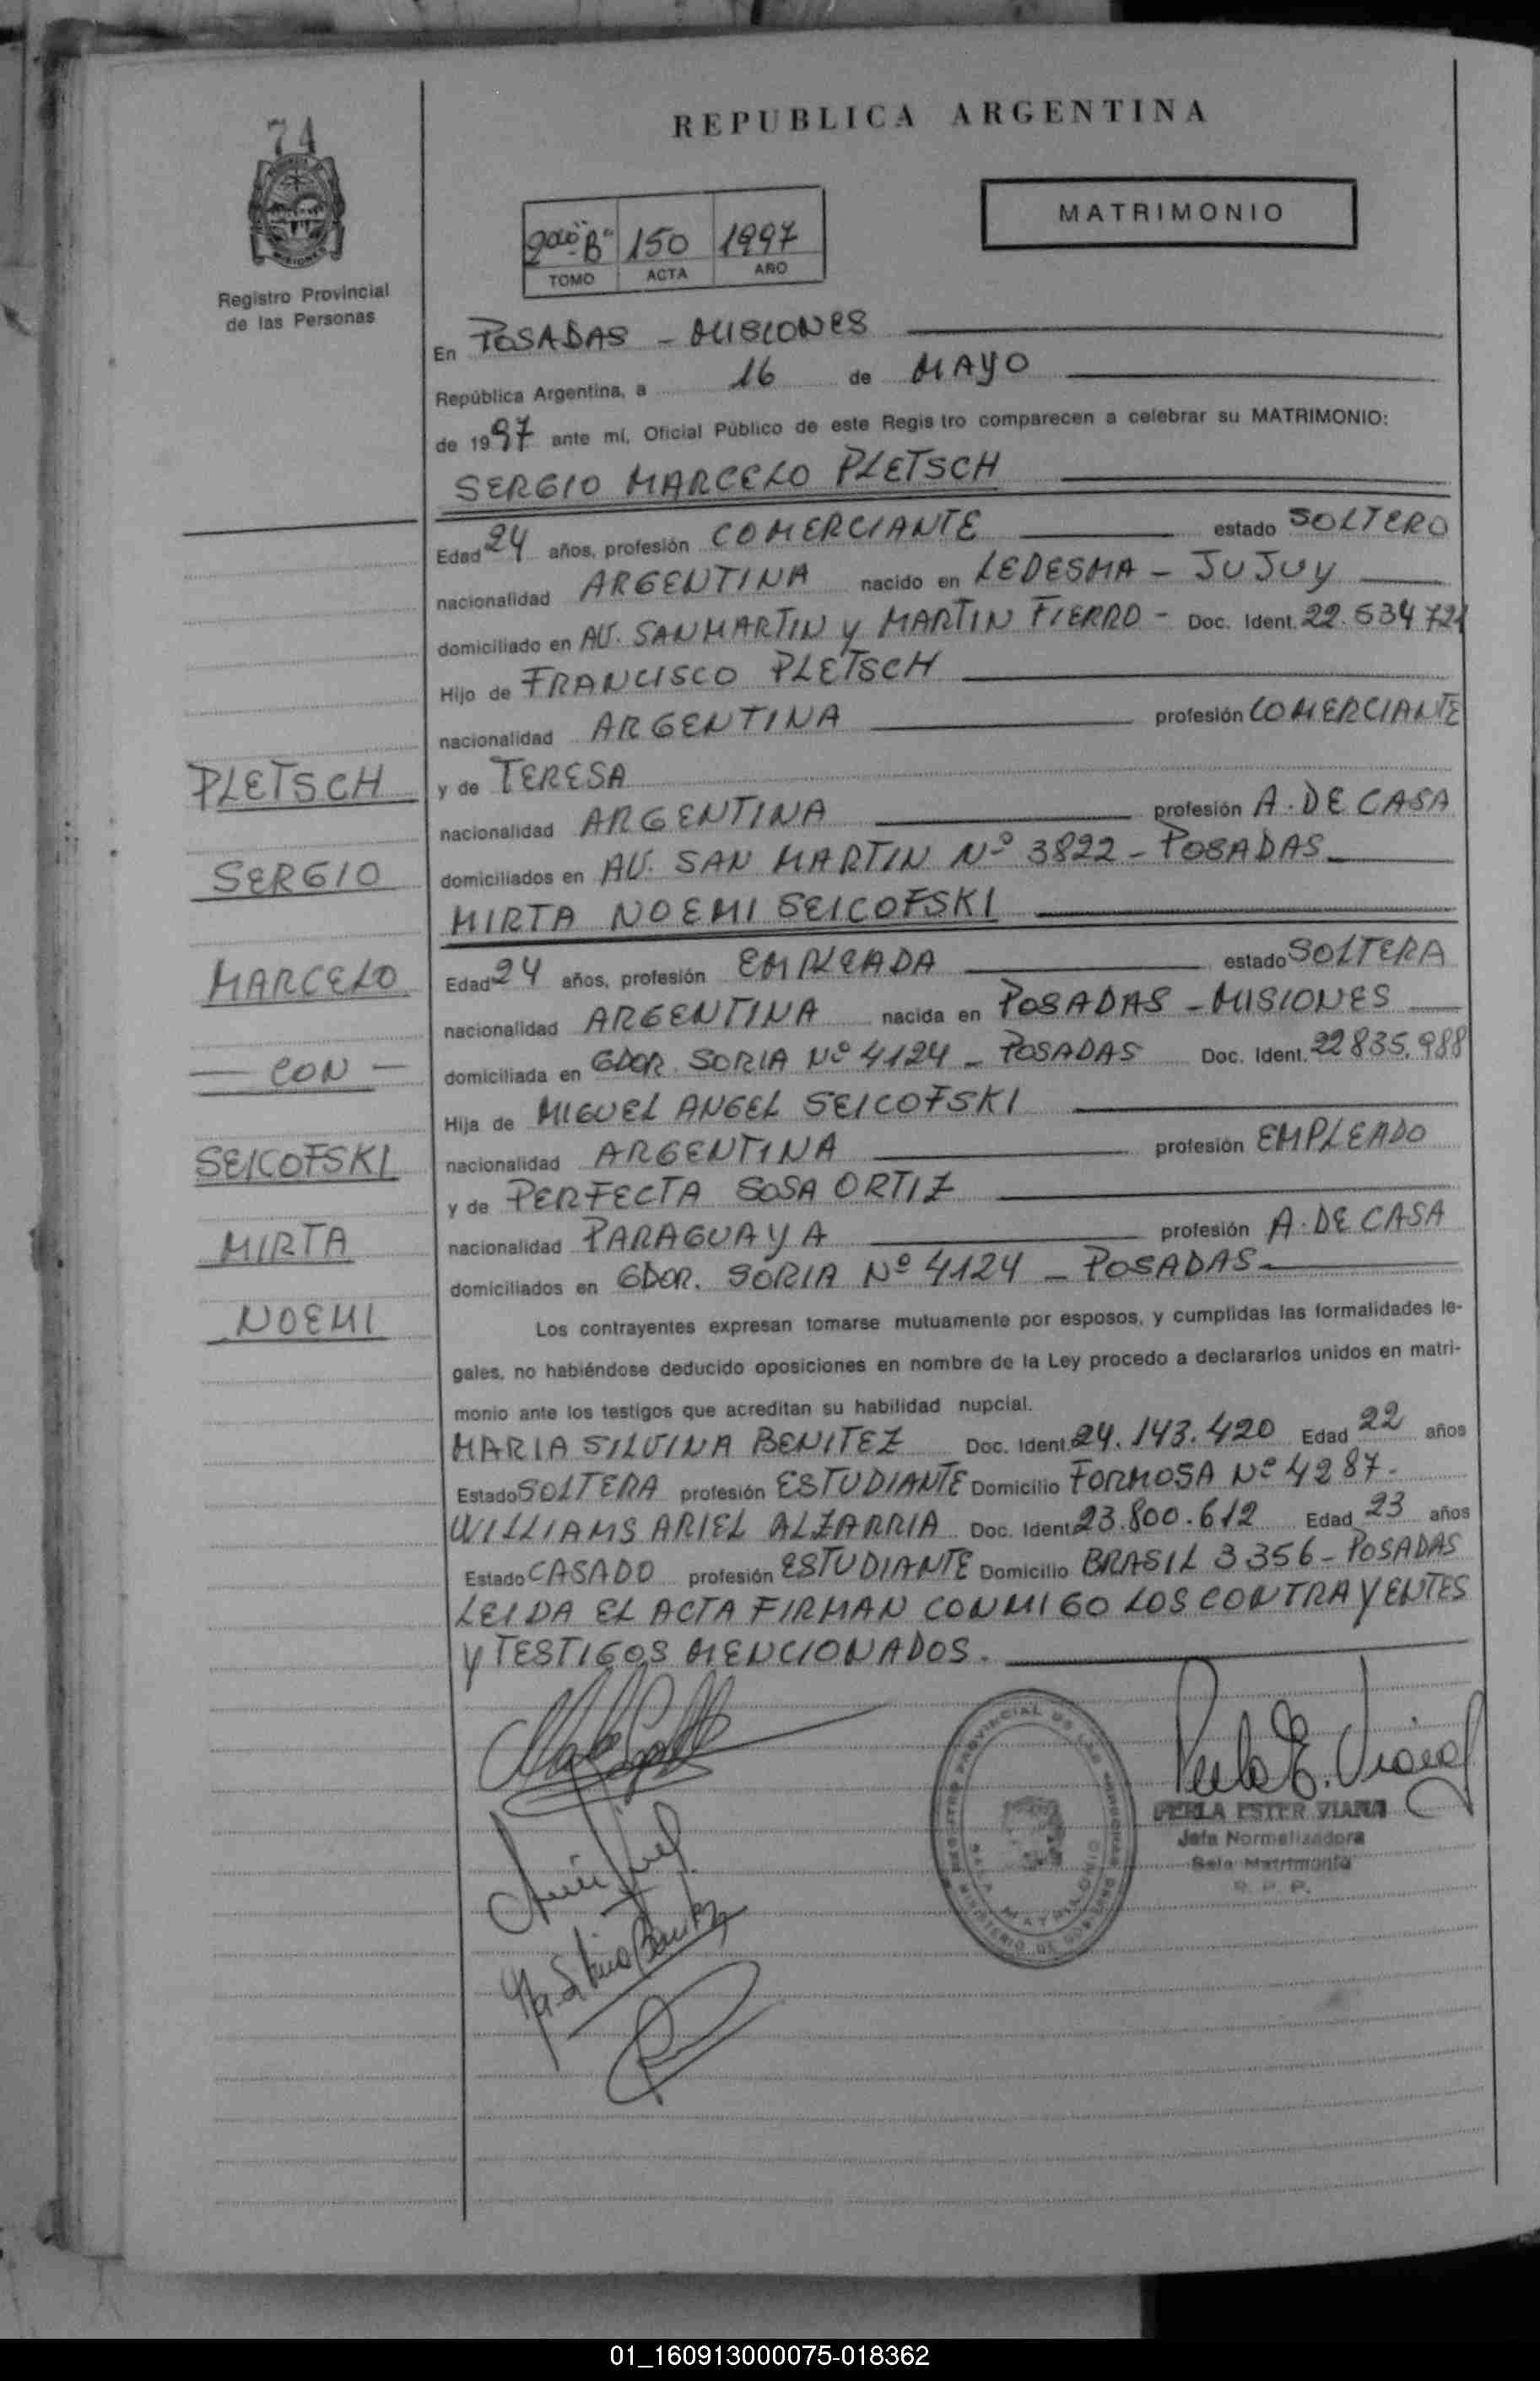 74
Registro Provincial
de las Personas
REPUBLICA ARGENTINA
MATRIMONIO
2do "B" 150 1997
TOMO ACTA AÑO
En POSADAS - MISIONES
República Argentina, a 16 de MAYO
de 1997 ante mí, Oficial Público de este Registro comparecen a celebrar su MATRIMONIO:
SERGIO MARCELO PLETSCH
Edad 24 años, profesión COMERCIANTE estado SOLTERO
nacionalidad ARGENTINA nacido en LEDESMA - JUJUY
domiciliado en AV. SAN MARTIN y MARTIN FIERRO - Doc. Ident. 22.534 721
Hijo de FRANCISCO PLETSCH
nacionalidad ARGENTINA profesión COMERCIANTE
y de TERESA
nacionalidad ARGENTINA profesión A. DE CASA
domiciliados en AV. SAN MARTIN Nº 3822 - POSADAS
MIRTA NOEMI SEICOFSKI
Edad 24 años, profesión EMPLEADA estado SOLTERA
nacionalidad ARGENTINA nacida en POSADAS - MISIONES
domiciliada en GDOR. SORIA Nº 4124 - POSADAS Doc. Ident. 22835.988
Hija de MIGUEL ANGEL SEICOFSKI
nacionalidad ARGENTINA profesión EMPLEADO
y de PERFECTA SOSA ORTIZ
nacionalidad PARAGUAYA profesión A. DE CASA
domiciliados en GDOR. SORIA Nº 4124 - POSADAS
Los contrayentes expresan tomarse mutuamente por esposos, y cumplidas las formalidades le-
gales, no habiéndose deducido oposiciones en nombre de la Ley procedo a declararlos unidos en matri-
monio ante los testigos que acreditan su habilidad nupcial.
MARIA SILVINA BENITEZ Doc. Ident. 24.143.420 Edad 22 años
Estado SOLTERA profesión ESTUDIANTE Domicilio FORMOSA Nº 4287.
WILLIAMS ARIEL ALZARRIA Doc. Ident. 23.800.612 Edad 23 años
Estado CASADO profesión ESTUDIANTE Domicilio BRASIL 3356 - POSADAS
LEIDA EL ACTA FIRMAN CONMIGO LOS CONTRAYENTES
Y TESTIGOS MENCIONADOS.
PLETSCH
SERGIO
MARCELO
- CON -
SEICOFSKI
MIRTA
NOEMI
Ma. Silvina Benitez
REGISTRO PROVINCIAL DE LAS PERSONAS
SALA MATRIMONIO
MINISTERIO DE GOBIERNO
Perla E. Viana
PERLA ESTER VIANA
Jefa Normalizadora
Sala Matrimonio
R. P. P.
01_160913000075-018362